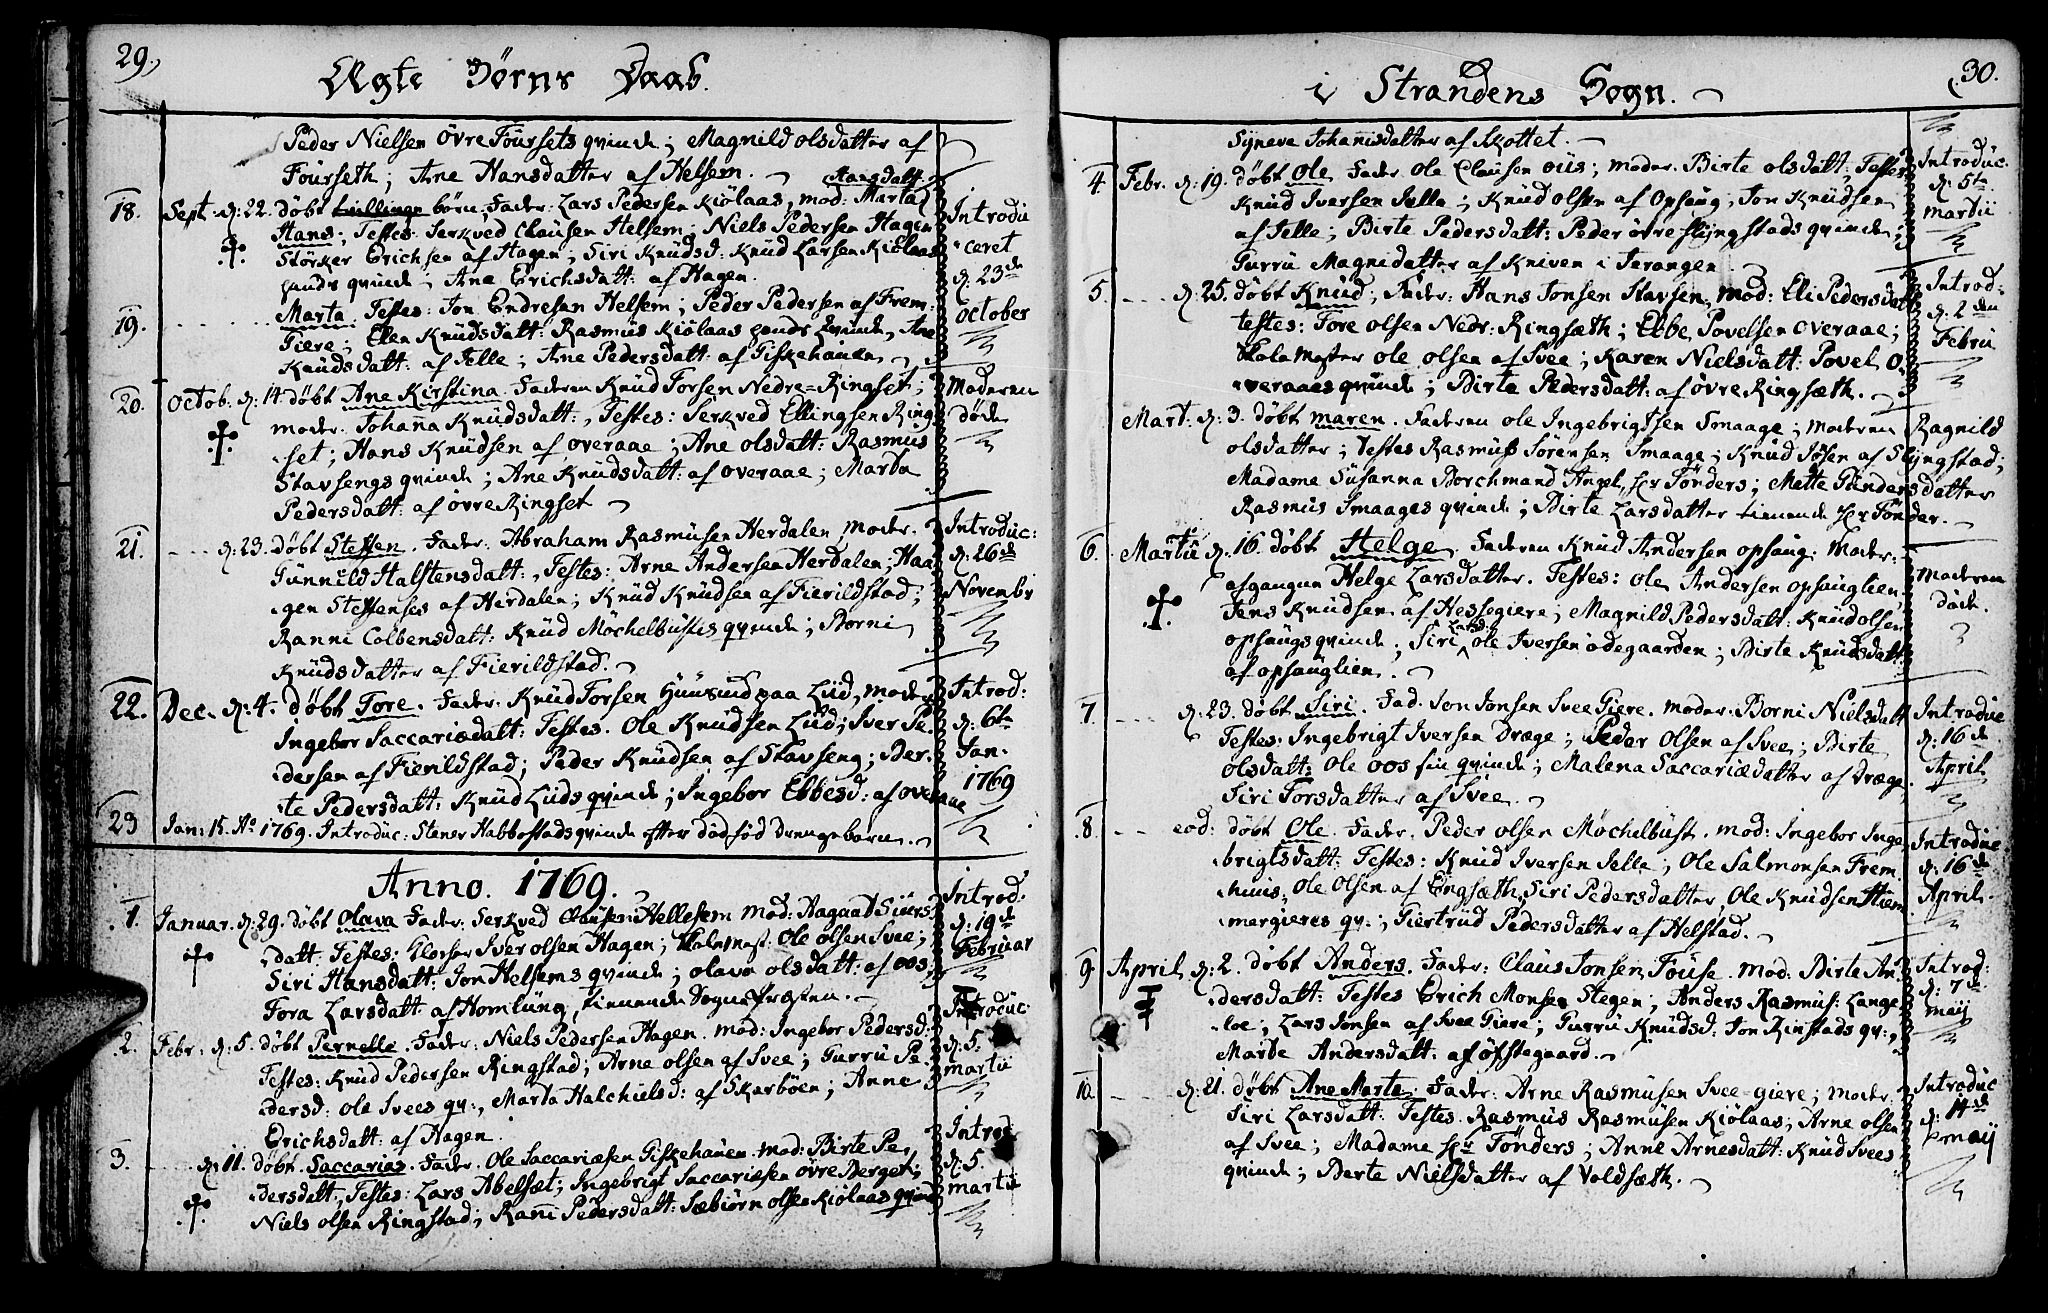 29.
Ægte Børns Daab.
Peder Nielsen Øvre Foursets qvinde; Magnild olsdatter af
Fourseth; Ane Hansdatter af Helsem.
Hansdatt.
18. Sept. d: 22. døbt tvillinge børn, Fader: Lars Pedersen Kiölaas, mod: Marta
Introdu
Hans; Testes: Serkved Clausen Helsem; Niels Pedersen Hagen
ceret
Störker Erichsen af Hagen; Siri Knudsd: Knud Larsen Kiölaas
d: 23de
qvinde, Ane Erichsdatt: af Hagen.
October
19. Marta. Testes: Jon Endresen Helsem; Peder Pedersen af Frem
Giere; Elen Knudsdatt: Rasmus Kiölaas qvinde, Ane
Knudsdatt: af Jelle; Ane Pedersdatt: af Giskehauen
20. Octob. d: 14 døbt Ane Kirstina. Faderen Knud Torsen Nedre=Ringset;
Moderen
moder. Johana Knudsdatt:, Testes: Serkved Ellingsen Ring
døde
set; Hans Knudsen af overaae; Ane olsdatt: Rasmus
Stavsengs qvinde; Ane Knudsdatt: af overaae; Marta
Pedersdatt: af øvre Ringset
21. d: 23. døbt Steffen. Fader: Abraham Rasmusen Herdalen, moder.
Introduc:
Gunnild Halstensdatt:, Testes: Arne Andersen Herdalen; Haa
d: 26de
gen Steffenses af Herdalen; Knud Knudsen af Fierildstad;
Novembr
Ranni Colbensdatt: Knud Mochelbustes qvinde; Borni
Knudsdatter af Fierildstad.
22. Dec. d: 4. døbt Tore. Fader. Knud Torsen paa Liid, moder
Introd:
Ingebor Saccariædatt: Testes. Ole Knudsen Liid; Iver Pe
d: 6te
dersen af Fierildstad; Peder Knudsen af Stavseng; Ber
Jan.
te Pedersdatt: Knud Liids qvinde; Ingebor Ebbesd: af overaae
1769
23 Jan: 15. Ao 1769. Introduc: Stener Habbestads qvinde efter dødfød Drengebarn.
Anno. 1769.
1. Januar. d: 29. døbt Olava Fader: Serkved Clausen Hellesem mod: Aagaat Siurs
Introd.
datt: Testes: Klocker Iver olsen Hagen; Skolemest: Ole olsen Svee;
d: 19de
Siri Hansdatt: Jon Helsems qvinde; olava olsdatt: af oos;
Februar
Tora Larsdatt: af Homlung, tienende Sogne Præsten.
2. Febr. d: 5. døbt Pernelle. Fader: Niels Pedersen Hagen. mod: Ingebor Pedersd:
Introduc:
Testes: Knud Pedersen Ringstad; Arne olsen af Svee; Gurru Pe
d: 5.
dersd: ole Svees qv:, Marta Halchielsd: af Skarbøen; Anne
martii
Erichsdatt: af Hagen.
3. d: 11. døbt Saccarias. Fader: Ole Saccariæsen Giskehauen. mod: Birte Pe
Introd
dersdatt:, Testes: Lars Abelsæt; Ingebrigt Saccariæsen øvre Berget;
d: 5.
Niels olsen Ringstad; Ranni Pedersdatt: Sæbiørn olsen Kiölaas qvinde
martii
30.
i Strandens Sogn.
Syneve Johannisdatter af Skottet.
4 Febr. d: 19. døbt Ole. Fader. Ole Clausen ous; moder. Birte olsdatt, Testes
Introduc.
Knud Iversen Jelle; Knud olsen af Opsaug, Jon Knudsen
d: 5te
af Jelle; Birte Pedersdatt: Peder øvre Slyngstads qvinde;
martii
Gurru Magnidatter af Kniven i Jerangen
5. d: 25. døbt Knud, Fader: Hans Jonsen Stavsen, mod: Eli Pedersdatt
Introd:
testes: Tore olsen Nedr: Ringsæth; Ebbe Povelsen overaae;
d: 2den
Skole Mester ole olsen af Svee; Karen Nielsdatt: Povel O
Febru
veraaes qvinde; Birte Pedersdatt: af øvre Ringsæth.
Mart. d: 3. døbt maren. Faderen ole Ingebrigtsen Smaage; moderen Ragnild
olsdatter; Testes Rasmuss Sörensen Smaage; Knud Josen af Slyngstad;
Madame Susanna Borchmand Angel, Hr Tönders; Mette Gundersdatter
Rasmus Smaages qvinde; Birte Larsdatter tienende Hr Tönder.
6. Martii d: 16. døbt Helge. Faderen Knud Andersen opsaug. Moder.
afgangne Helge Larsdatter. Testes: ole Andersen opsauglien,
Moderen
Jens Knudsen af Hessegiere; Magnild Pedersdatt: Knud olsen
døde.
opsaugs qvinde; Siri Larsd: ole Iversen ødegaarden; Birte Knudsdatt
af opsauglien.
7. d: 23. døbt Siri. Fad. Jon Jonsen Svee Giere. moder. Borni Nielsdatt
Introduc
Testes: Ingebrigt Iversen Dræge; Peder Olsen af Svee; Birte
d: 16de
olsdatt: Ole oos sin qvinde; Malena Saccariædatter af Dræge,
April
Siri Torsdatter af Svee.
8. eod: døbt Ole. Fader. Peder olsen Møchelbust. mod: Ingebor Inge
Introduc
brigtsdatt: Testes: Knud Iversen Jelle; Ole Salmonsen Frem
d: 16de
huus, Ole Olsen af Engsæth, Siri Pedersdatter, Ole Knudsen Hiem
April.
mergieres qv:; Giertrud Pedersdatter af Helstad.
9. April d: 2. døbt Anders. Fader: Claus Jonsen, Fouse. mod: Birte An
Introd:
dersdatt: Testes Erich Monsen Stegen; Anders Rasmus: Lange
d: 7de
loe; Lars Jonsen af Svee Giere; Gurru Knudsd: Jon Rinstads qv:;
maij
Marte Andersdatt: af øfstegaard.
10. d: 21. døbt Ane Marta. Fader: Arne Rasmusen Svee-giere; moder.
Introduc
Siri Larsdatt: Testes. Rasmus Rasmusen Kiölaas; Arne olsen
d: 14de
af Svee; Madame Hr Tönders; Anne Arnesdatt: Knud Svees
maij
qvinde; Berte Nielsdatter af Voldsæth.